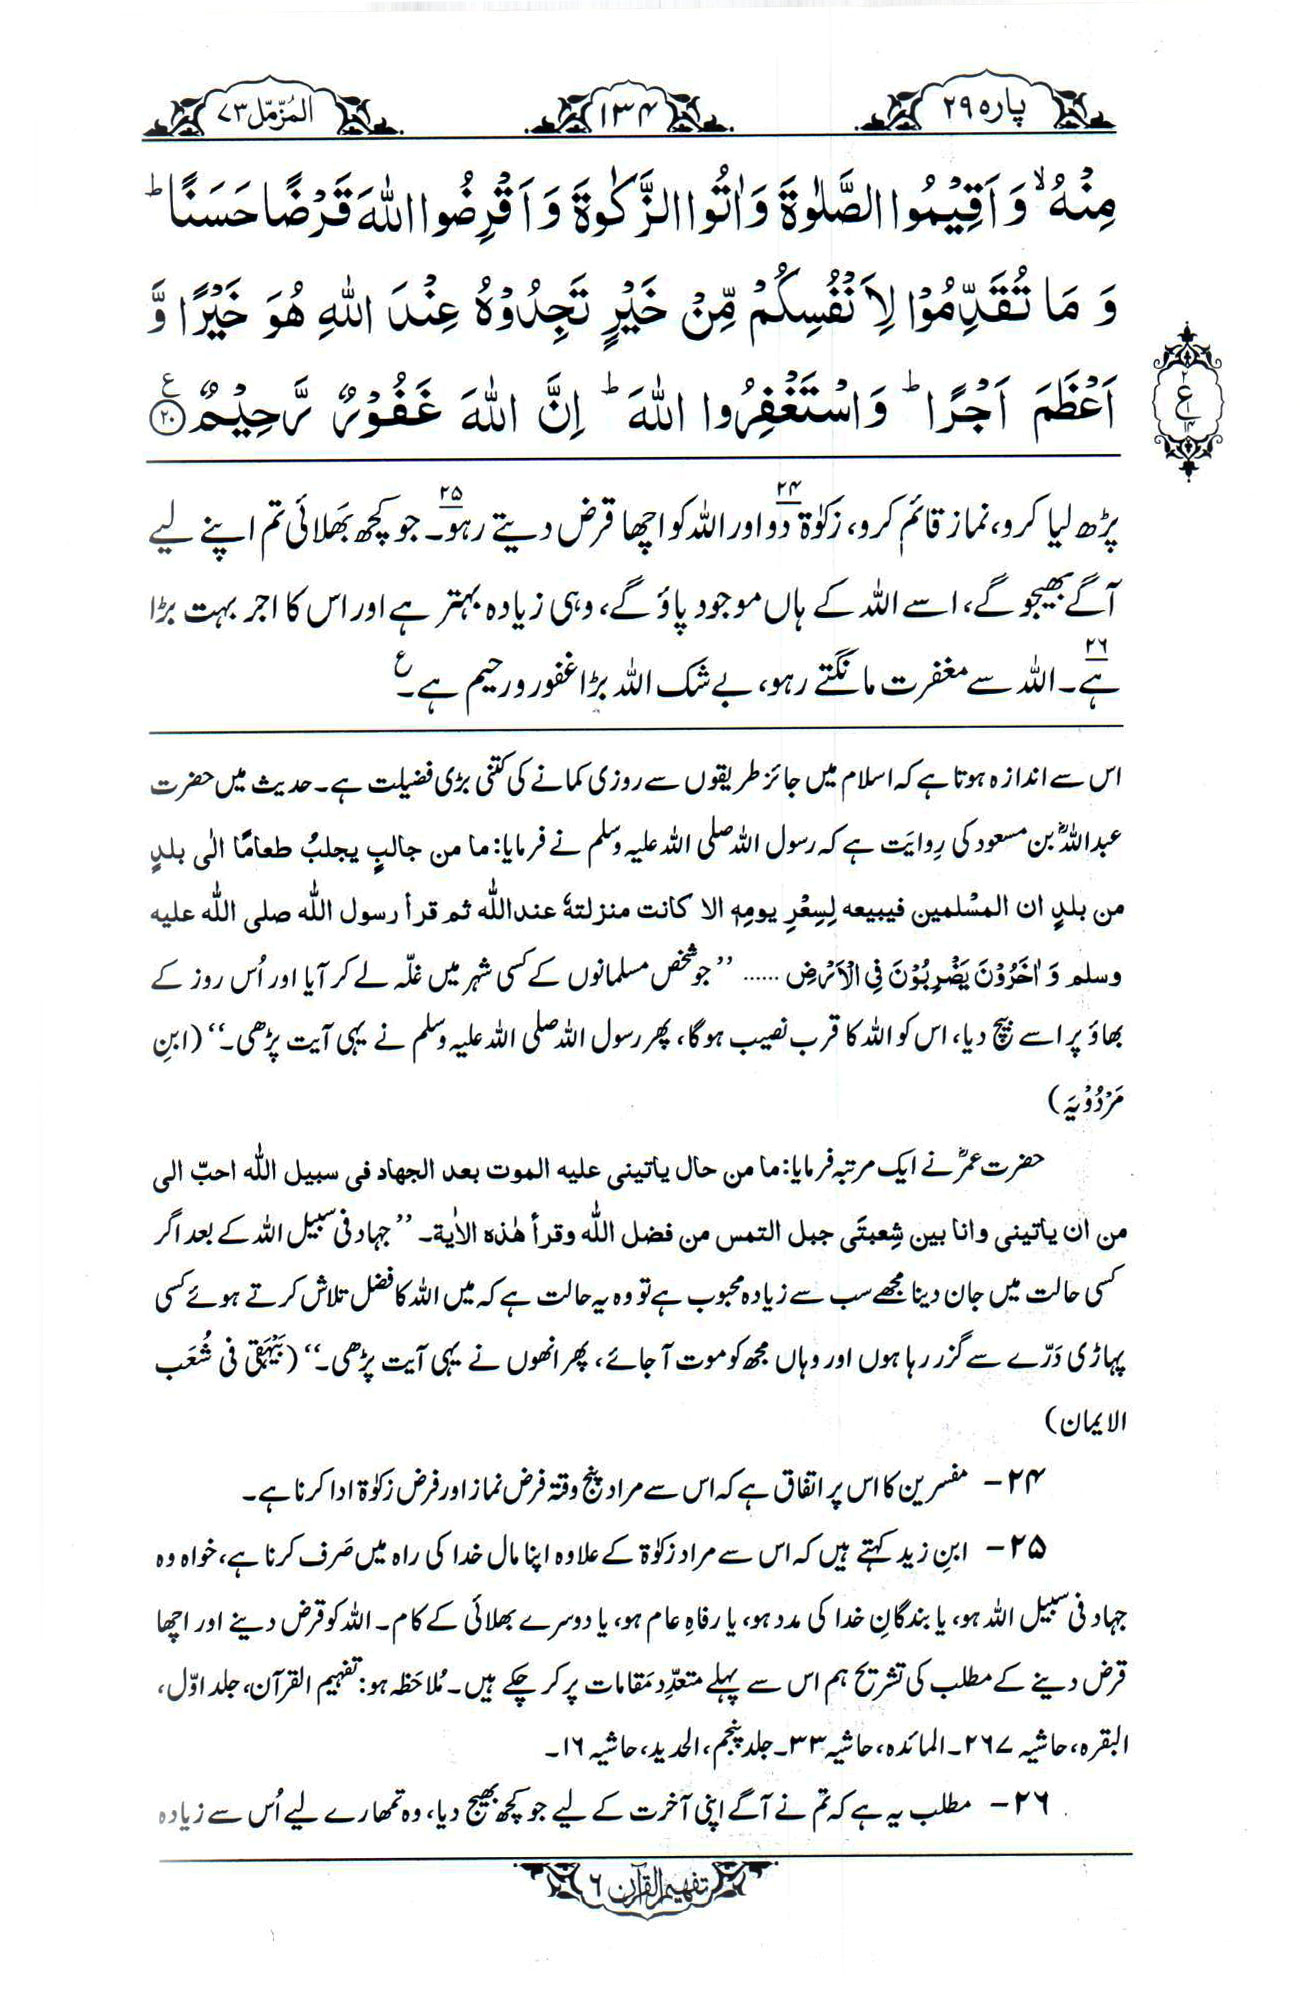 پارہ ۲۹
۱۳۴
المُزّمّل ۷۳
مِنْهُ ۙ وَ اَقِيْمُوا الصَّلٰوةَ وَ اٰتُوا الزَّكٰوةَ وَ اَقْرِضُوا اللّٰهَ قَرْضًا حَسَنًا ؕ
وَ مَا تُقَدِّمُوْا لِاَنْفُسِكُمْ مِّنْ خَيْرٍ تَجِدُوْهُ عِنْدَ اللّٰهِ هُوَ خَيْرًا وَّ
اَعْظَمَ اَجْرًا ؕ وَ اسْتَغْفِرُوا اللّٰهَ ؕ اِنَّ اللّٰهَ غَفُوْرٌ رَّحِيْمٌ ﴿۲۰﴾ ع
۲ ع ۱۴
پڑھ لیا کرو، نماز قائم کرو، زکوٰۃ دو ۲۴ اور اللہ کو اچھا قرض دیتے رہو۔ ۲۵ جو کچھ بَھلائی تم اپنے لیے
آگے بھیجو گے، اسے اللہ کے ہاں موجود پاؤ گے، وہی زیادہ بہتر ہے اور اس کا اجر بہت بڑا
ہے۔ ۲۶ اللہ سے مغفرت مانگتے رہو، بے شک اللہ بڑا غفور و رحیم ہے۔ ع
اس سے اندازہ ہوتا ہے کہ اسلام میں جائز طریقوں سے روزی کمانے کی کتنی بڑی فضیلت ہے۔ حدیث میں حضرت
عبداللہؓ بن مسعود کی رِوایَت ہے کہ رسول اللہ صلی اللہ علیہ وسلم نے فرمایا: ما من جالبٍ يجلبُ طعامًا الٰی بلدٍ
من بلدٍ ان المسْلمين فيبيعه لِسِعْرِ يومِهٖ الا كانت منزلتهٗ عندالله ثم قرأ رسول الله صلى الله عليه
وسلم وَ اٰخَرُوْنَ يَضْرِبُوْنَ فِي الْاَرْضِ ...... ’’جو شخص مسلمانوں کے کسی شہر میں غلّہ لے کر آیا اور اُس روز کے
بھاؤ پر اسے بیچ دیا، اس کو اللہ کا قرب نصیب ہو گا، پھر رسول اللہ صلی اللہ علیہ وسلم نے یہی آیت پڑھی۔‘‘ (ابنِ
مَرْدُوْیَہ)
حضرت عمرؓ نے ایک مرتبہ فرمایا: ما من حال ياتينى عليه الموت بعد الجهاد فى سبيل الله احبّ الى
من ان ياتينى وانا بين شِعبتَى جبل التمس من فضل الله وقرأ هٰذه الاٰية۔ ’’جہاد فی سبیل اللہ کے بعد اگر
کسی حالت میں جان دینا مجھے سب سے زیادہ محبوب ہے تو وہ یہ حالت ہے کہ میں اللہ کا فضل تلاش کرتے ہوئے کسی
پہاڑی دَرّے سے گزر رہا ہوں اور وہاں مجھ کو موت آ جائے، پھر انھوں نے یہی آیت پڑھی۔‘‘ (بَیْہَقِی فی شُعَب
الایمان)
۲۴ – مفسرین کا اس پر اتفاق ہے کہ اس سے مراد پنج وقتہ فرض نماز اور فرض زکوٰۃ ادا کرنا ہے۔
۲۵ – ابنِ زید کہتے ہیں کہ اس سے مراد زکوٰۃ کے علاوہ اپنا مال خدا کی راہ میں صَرف کرنا ہے، خواہ وہ
جہاد فی سبیل اللہ ہو، یا بندگانِ خدا کی مدد ہو، یا رفاہِ عام ہو، یا دوسرے بھلائی کے کام۔ اللہ کو قرض دینے اور اچھا
قرض دینے کے مطلب کی تشریح ہم اس سے پہلے متعدِّد مَقامات پر کر چکے ہیں۔ مُلاحَظہ ہو: تفہیم القرآن، جلد اوّل،
البقرہ، حاشیہ ۲۶۷۔ المائدہ، حاشیہ ۳۳۔ جلد پنجم، الحدید، حاشیہ ۱۶۔
۲۶ – مطلب یہ ہے کہ تم نے آگے اپنی آخرت کے لیے جو کچھ بھیج دیا، وہ تمھارے لیے اُس سے زیادہ
تفہیم القرآن ۶